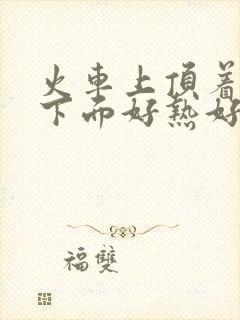 火車上頂着
下而好熱好
福雙